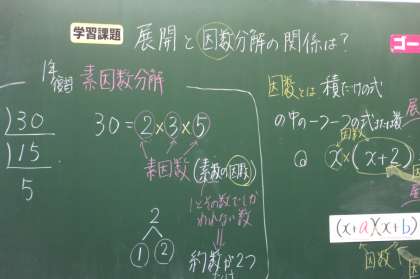 学習課題
展開と因数分解の関係は?
1年
復習
素因数分解
30
15
5
30=2×3×5
素因数(素数の因数)
1とその数でしか
われない数
2
① ②
約数が2つ
因数とは 積だけの式
の中の一つ一つの式または数
因数
x×(x+2)
(x+a)(x+b)
因数
ゴー
展